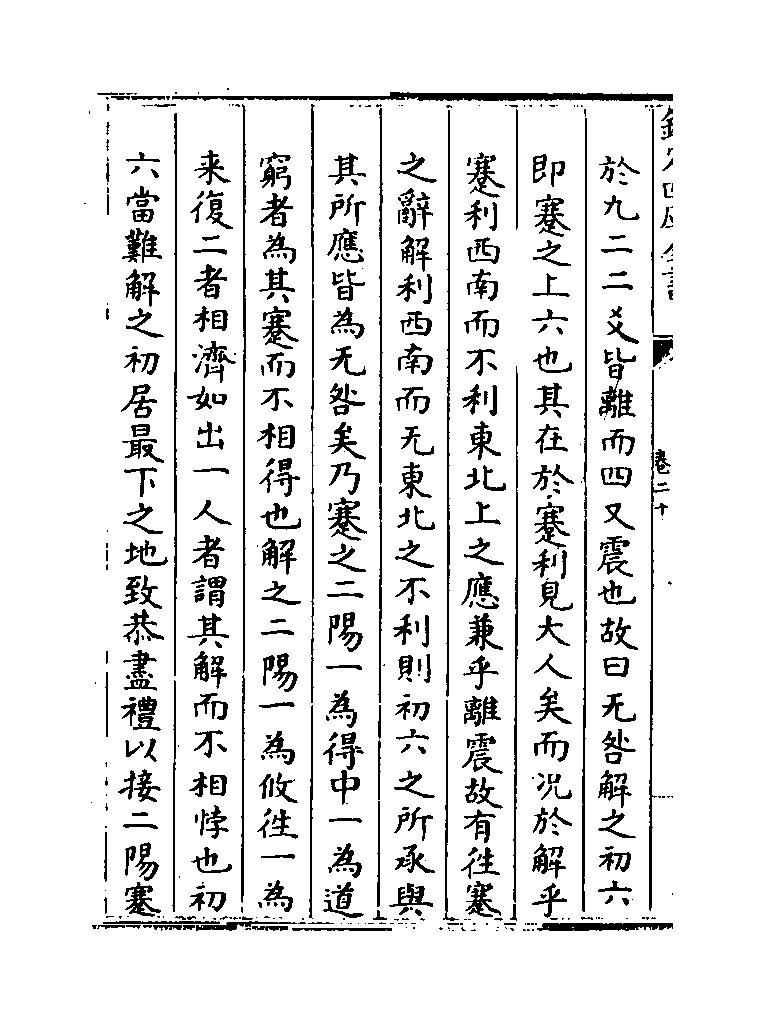 欽定四庫全書
卷二十
於九二二爻皆離而四又震也故曰无咎解之初六
即蹇之上六也其在於蹇利見大人矣而况於解乎
蹇利西南而不利東北上之應兼乎離震故有徃蹇
之辭解利西南而无東北之不利則初六之所承與
其所應皆為无咎矣乃蹇之二陽一為得中一為道
窮者為其蹇而不相得也解之二陽一為攸徃一為
来復二者相濟如出一人者謂其解而不相悖也初
六當難解之初居最下之地致恭盡禮以接二陽蹇